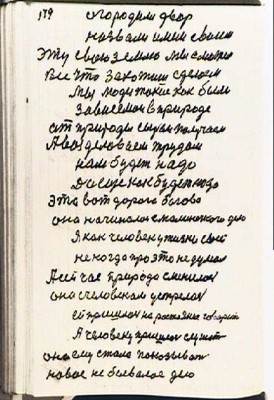 179 огородим двор
назвали имя своим
Эту свою землю мы сможем
Все что захотим сделаем
Мы люди такие как были
Зависимон в природе
от природы сырьем получаем
А воз деловаем трудом
нам будет надо
Да еще как будет надо
Это вот дорога богово
она начиналось с маленького дело
Я как человек у жизни своей
не когда про это не думал
А сейчас природа сменилася
она с человеком устрела
ей пришлося на ростояние говорит
А человеку пришлося слушат
она ему стала показыват
новое не бывалое дело